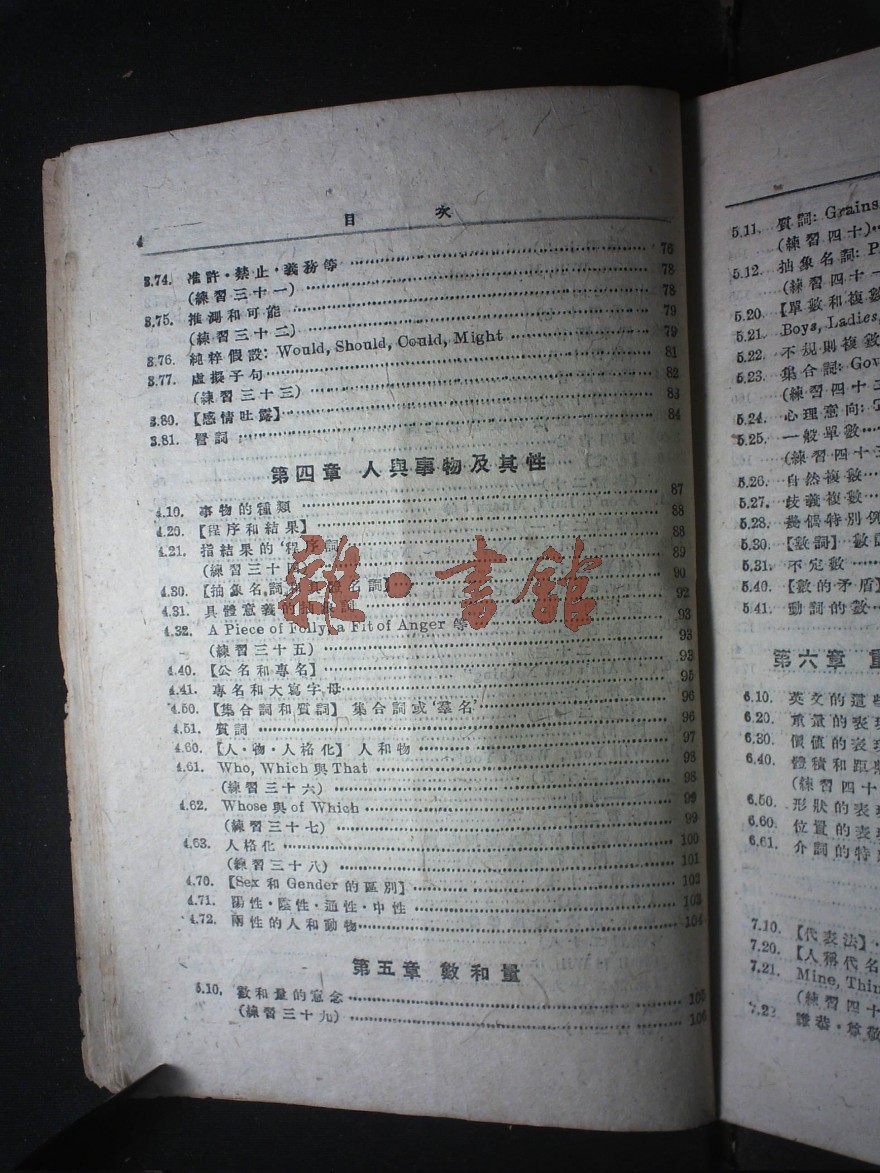 4
目 次
3.74. 准許·禁止·義務等 76
(練習三十一) 78
3.75. 推測和可能 78
(練習三十二) 79
3.76. 純粹假設: Would, Should, Could, Might 79
3.77. 虛擬子句 81
(練習三十三) 82
3.80. 【感情吐露】 83
3.81. 詈詞 84
第四章 人與事物及其性
4.10. 事物的種類 87
4.20. 【程序和結果】 88
4.21. 指結果的‘程序詞’ 88
(練習三十四) 89
4.30. 【抽象名詞和具體名詞】 90
4.31. 具體意義的抽象詞 92
4.32. A Piece of Folly, a Fit of Anger 等 93
(練習三十五) 93
4.40. 【公名和專名】 93
4.41. 專名和大寫字母 95
4.50. 【集合詞和質詞】 集合詞或‘羣名’ 96
4.51. 質詞 96
4.60. 【人·物·人格化】 人和物 97
4.61. Who, Which 與 That 98
(練習三十六) 98
4.62. Whose 與 of Which 99
(練習三十七) 99
4.63. 人格化 100
(練習三十八) 101
4.70. 【Sex 和 Gender 的區別】 102
4.71. 陽性·陰性·通性·中性 103
4.72. 兩性的人和動物 104
第五章 數和量
5.10. 數和量的意念 105
(練習三十九) 106
5.11. 質詞: Grains,
(練習四十)
5.12. 抽象名詞: P
(練習四十一
5.20. 【單數和複數
5.21. Boys, Ladies,
5.22. 不規則複數
5.23. 集合詞: Gov
(練習四十二
5.24. 心理意向:
5.25. 一般單數
(練習四十三
5.26. 自然複數
5.27. 歧義複數
5.28. 特別例
5.30. 【數詞】 數
5.31. 不定數
5.40. 【數的矛盾】
5.41. 動詞的數
第六章
6.10. 英文的這些
6.20. 重量的表現
6.30. 價值的表
6.40. 體積和距
(練習四十
6.50. 形狀的表
6.60. 位置的表
6.61. 介詞的特
7.10. 【代表法】
7.20. 【人稱代名
7.21. Mine, Thin
(練習四十
7.22 謙恭·尊敬
雜·書館